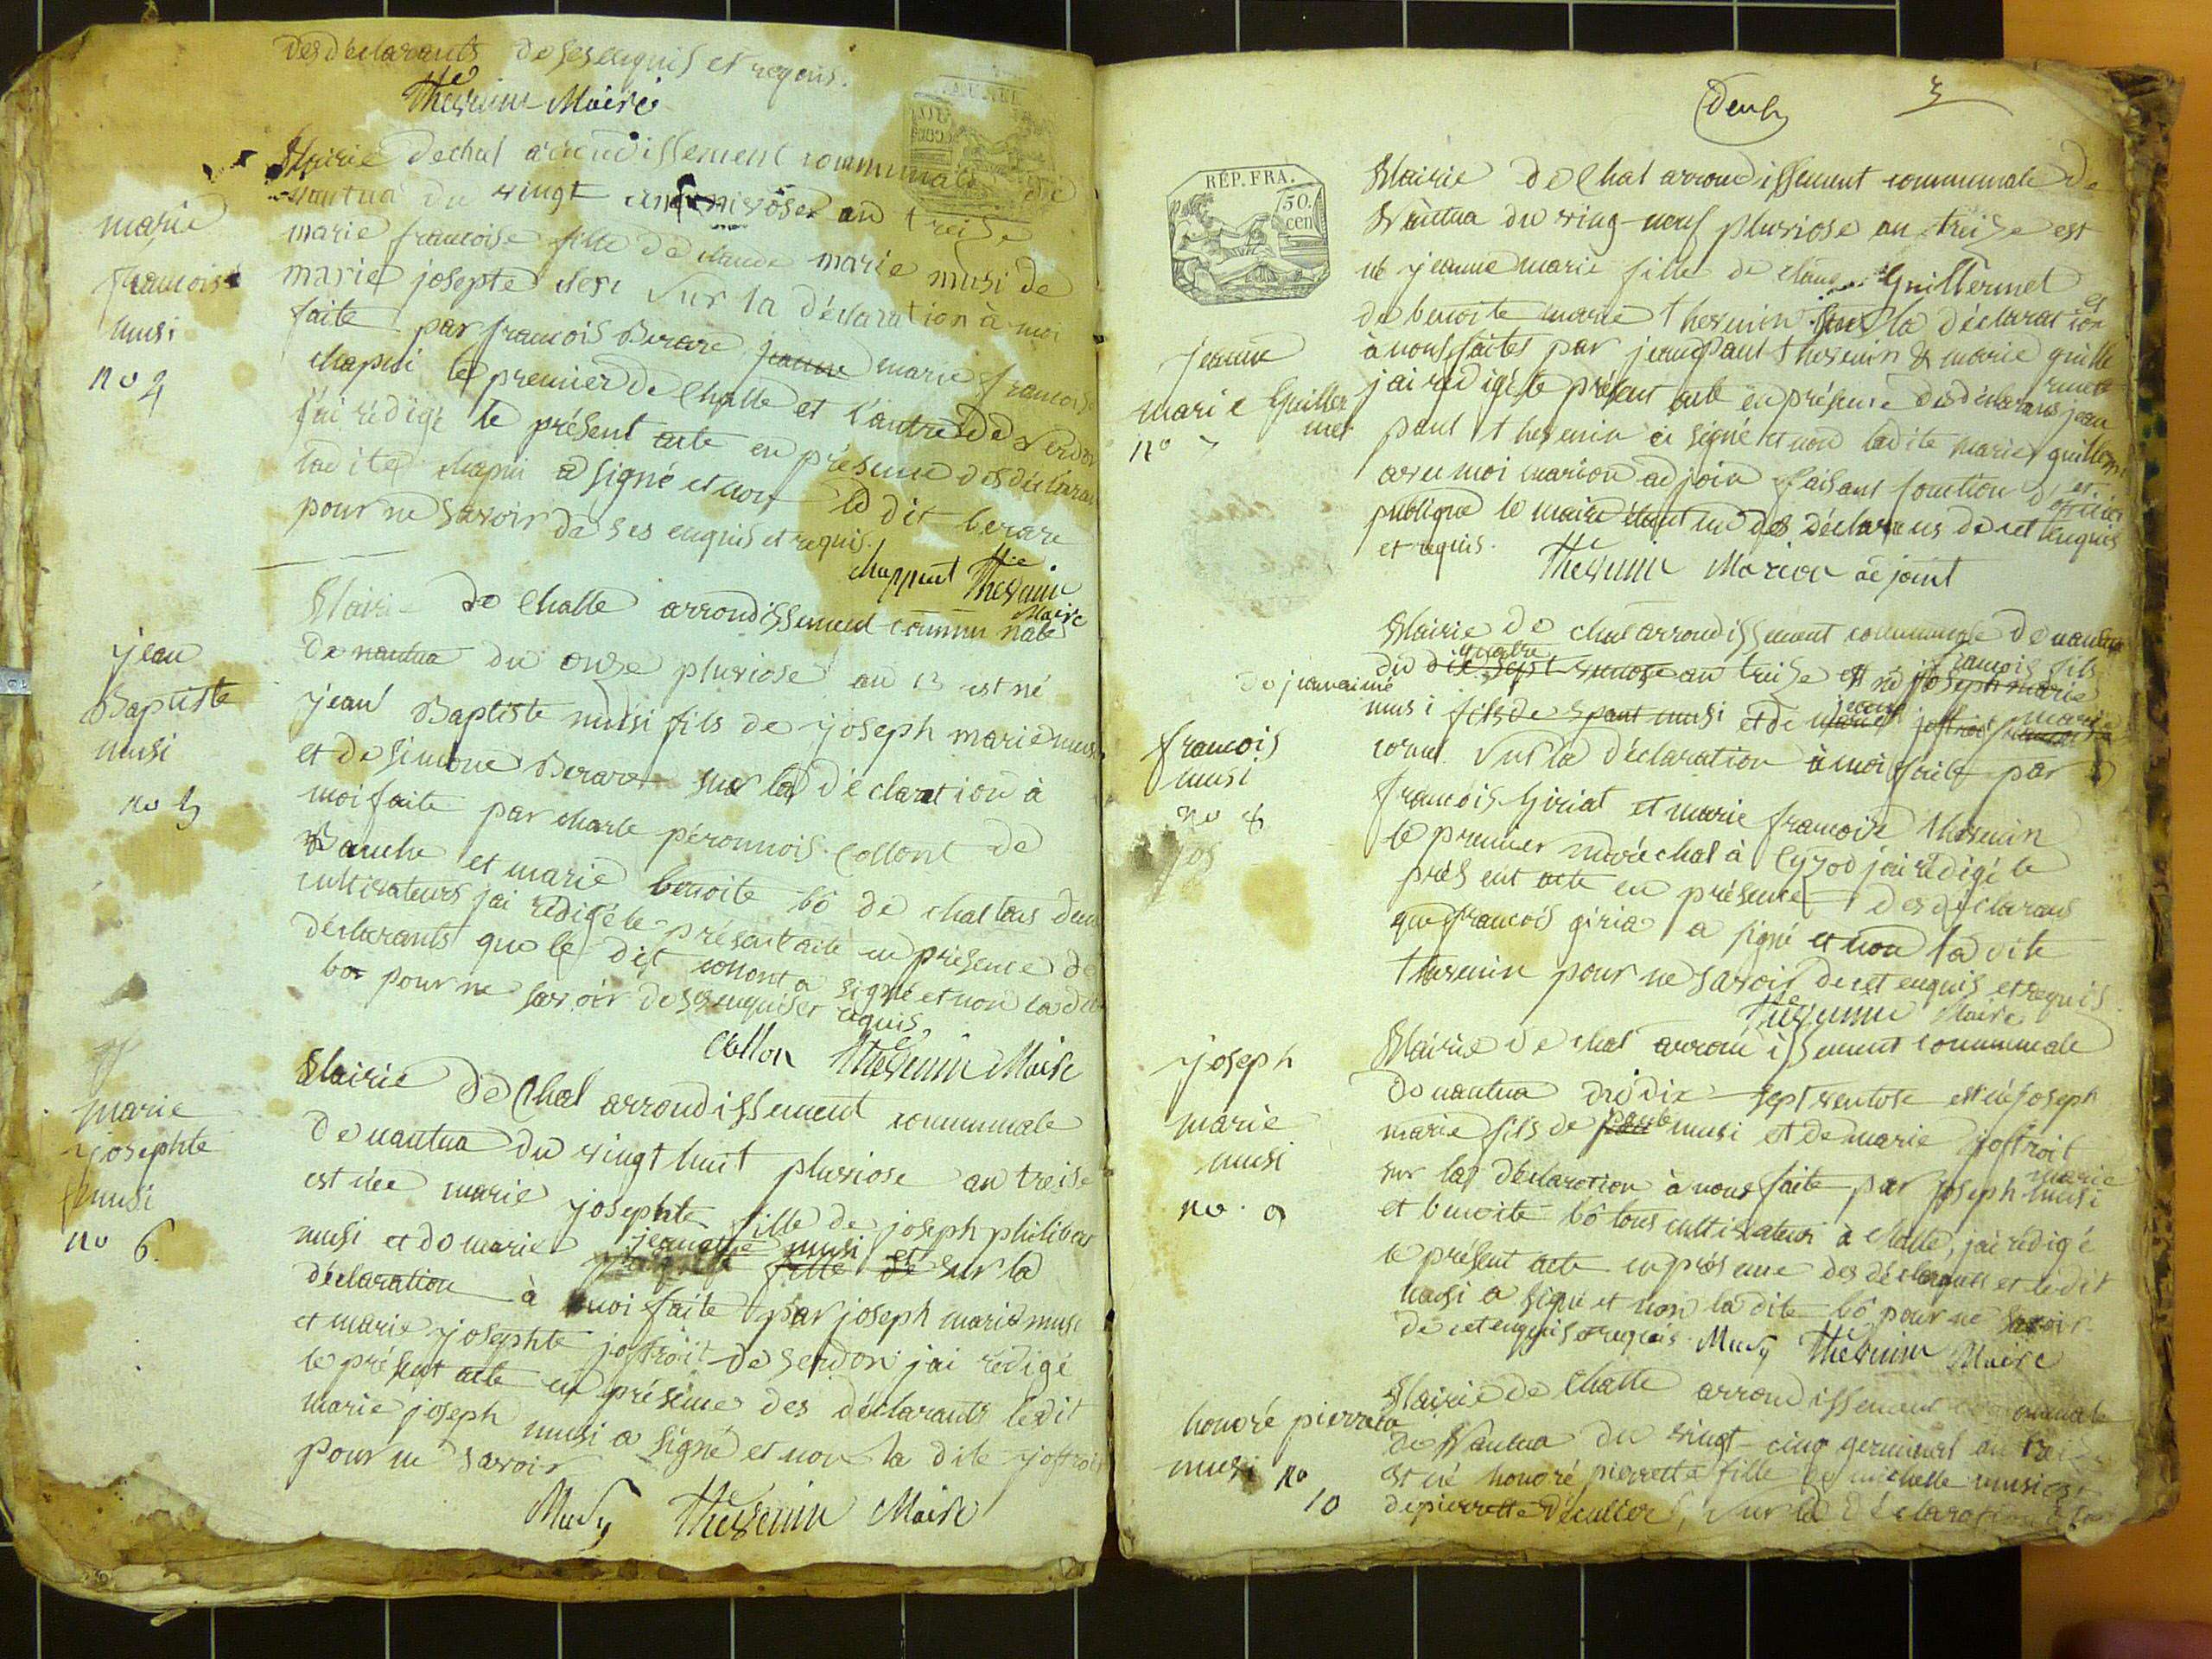 des déclarants de ses enquis et requis.
Thevenin Maire
Mairie de chal arrondissement communale de
nantua du vingt un nivose an treise
marie francoise fille de claude marie musi de
marie josepte sur la déclaration à moi
faite par francois Berare jeanne marie francoise
chapui le premier de Challe et l'autre de Serdon
j'ai rédigé le présent acte en présence des déclarans
ladite chapui a signé et non le dit berare
pour ne savoir de ses enquis et requis.
chappuit Thevenin
Maire
marie
francoise
musi
no 4
Mairie de Challe arrondissement communale
de nantua du onze pluviose an 13 est né
jean Baptiste musi fils de joseph marie musi
et de simone Berare sur la déclaration à
moi faite par charle péronnois Collont de
et marie benoite bô de chal tous deux
cultivateurs jai rédigé le présent acte en présence de
déclarants que le dit collont a signé et non la dit
bo pour ne savoir de ses enquis et requis,
Collon Thevenin Maire
jean
Baptiste
musi
no 5
Mairie de Chal arrondissement communale
de nantua du vingt huit pluviose an treise
est née marie josephte fille de joseph philiber
musi et de marie jeanne musi fille de sur la
déclaration à moi faite par joseph marie musi
et marie josephte joffroit de Serdon jai rédigé
le présent acte en présence des déclarants ledit
marie joseph musi a signé et non la dite joffroit
pour ne savoir
Musy Thevenin Maire
marie
josephte
musi
no 6.
deux 3
REP. FRA.
50.
cen
Mairie de Chal arrondissement communale de
Nantua du ving-neuf pluviose an treize est
né jeanne marie fille de claude Guillermet et
de benoite marie thevenin sur la déclaration
à nous faites par jean paul thevenin & marie guille
rmet
jai rédigé le présent acte en présence des déclarans jean
paul thevenin a signé et non ladite marie guillerm
et
avec moi marion adjoin faisant fonction d'officier
publique le maire étant un des déclarans de cet enquis
et requis. Thevenin Marion adjoint
jeanne
marie Guiller
met
no 7
Mairie de chal arrondissement communale de nantua
quatre francois fils
du dix sept ventose an treise est né joseph marie
de jeanaimé
musi fils de paul musi et de marie jeanne joffroit marie
cornu sur la déclaration à moi faite par
francois Giriat et marie francoise thevenin
le premier maréchal à leyzod jai rédigé le
présent acte en présence des déclarans
que francois giria a signé et non la dite
thevenin pour ne savoir de cet enquis et requis
Thevenin Maire
francois
musi
no 8
Mairie de chal arrondissement communale
de nantua du dix sept ventose est né joseph
marie fils de paule musi et de marie joffroit
marie
sur la déclaration à nous faite par joseph musi
et benoite bô tous cultivateurs à Challe, jai rédigé
le présent acte en présence des déclarants et ledit
musi a signé et non la dite bô pour ne savoir
de cet enquis et requis. Musy Thevenin Maire
joseph
marie
musi
no. 9
Mairie de Challe arrondissement communale
de Nantua du vingt-cinq germinal an treize
est né honoré pierrette fille de michelle musi et
de pierrette décullier, sur la déclaration à
honoré pierrette
musi no
10